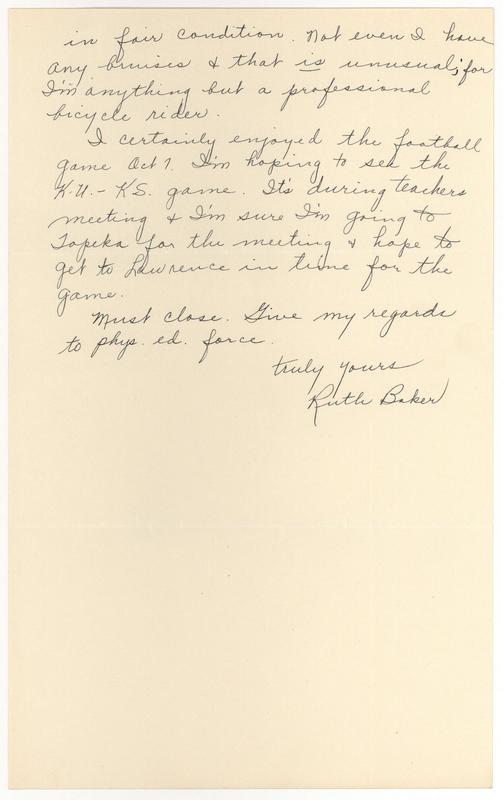 in fair condition. Not even I have
any bruises & that is unusual; for
I'm anything but a professional
bicycle rider.
I certainly enjoyed the football
game Oct 7. I'm hoping to see the
K.U. - K.S. game. It's during teachers
meeting & I'm sure I'm going to
Topeka for the meeting & hope to
get to Lawrence in time for the
game.
Must close. Give my regards
to phys. ed. force.
truly yours
Ruth Baker